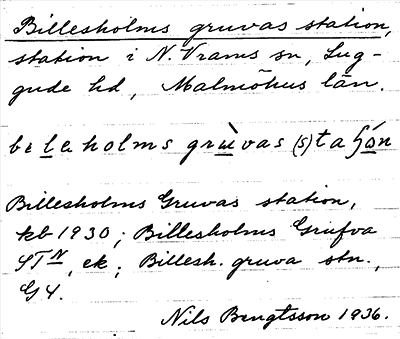 Billesholms gruvas station,
station i N. Vrams sn, Lug-
gude hd, Malmöhus län.
Billesholms Gruvas station,
kb 1930; Billesholms Grufva
STN, ek; Billesh. gruva stn.,
G4.
Nils Bengtsson 1936.